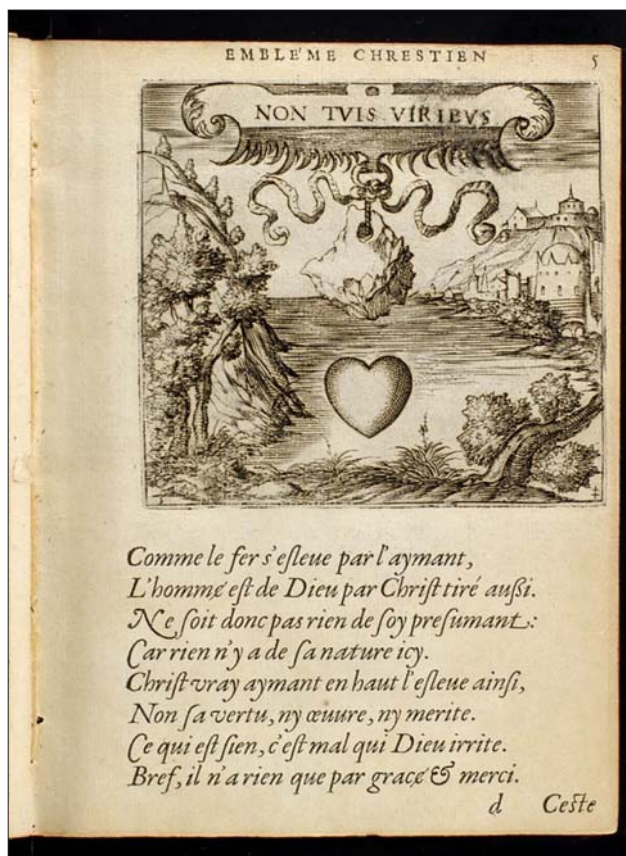 EMBLE'ME CHRESTIEN 5
NON TVIS VIRIBVS
Comme le fer s'eſleue par l'aymant,
L'homme eſt de Dieu par Chriſt tiré auſsi.
Ne ſoit donc pas rien de ſoy preſumant:
Car rien n'y a de ſa nature icy.
Chriſt vray aymant en haut l'eſleue ainſi,
Non ſa vertu, ny œuure, ny merite.
Ce qui eſt ſien, c'eſt mal qui Dieu irrite.
Bref, il n'a rien que par grace & merci.
d Ceſte